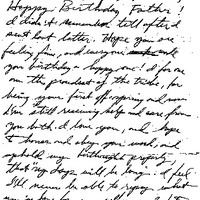 Happy Birthday Father!
I didn't remember till after I
sent last letter. Hope you are
feeling fine, and everyone
you birthday a happy one! I for one
am the proudest of the tribe, for
being your first offspring and now
I'm still receiving help and care from
you both. I love you, and hope
to honor and obey your word, and
uphold my birthright properly,
that "my days will be long." I feel
I'll never be able to repay what